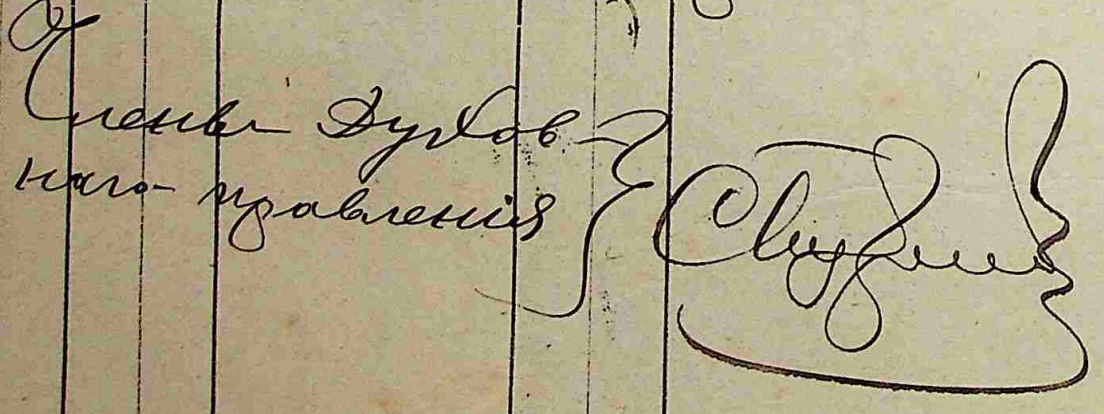 Члены Духов-
наго правленія